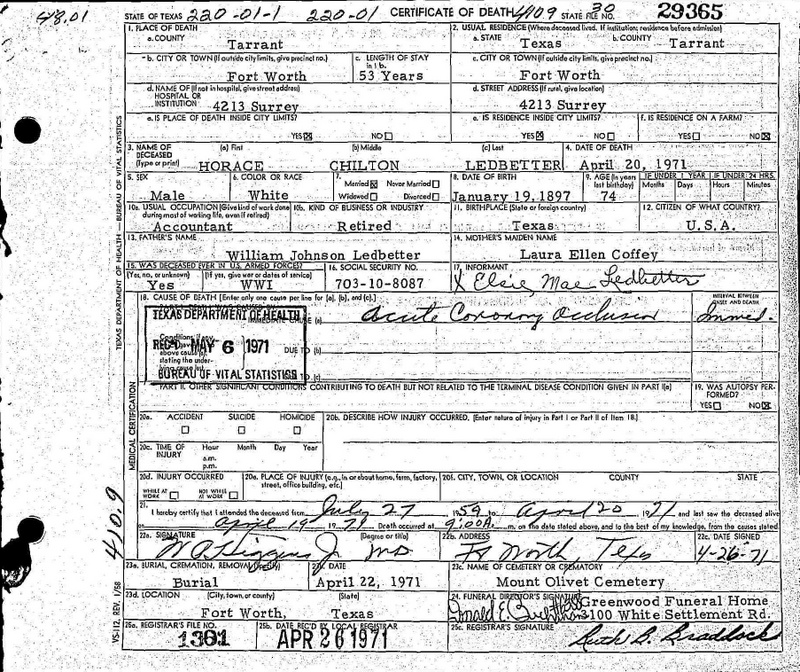 48.01
STATE OF TEXAS 220-01-1 220-01 CERTIFICATE OF DEATH 4109 STATE FILE NO. 30 29365
1. PLACE OF DEATH
a. COUNTY
Tarrant
2. USUAL RESIDENCE (Where deceased lived. If institution: residence before admission)
a. STATE b. COUNTY
Texas Tarrant
b. CITY OR TOWN (If outside city limits, give precinct no.)
Fort Worth
c. LENGTH OF STAY in 1b.
53 Years
c. CITY OR TOWN (If outside city limits, give precinct no.)
Fort Worth
d. NAME OF (If not in hospital, give street address) HOSPITAL OR INSTITUTION
4213 Surrey
d. STREET ADDRESS (If rural, give location)
4213 Surrey
e. IS PLACE OF DEATH INSIDE CITY LIMITS?
YES NO
e. IS RESIDENCE INSIDE CITY LIMITS?
YES NO
f. IS RESIDENCE ON A FARM?
YES NO
3. NAME OF DECEASED (Type or print)
(a) First (b) Middle (c) Last
HORACE CHILTON LEDBETTER
4. DATE OF DEATH
April 20, 1971
5. SEX
Male
6. COLOR OR RACE
White
7. Married Never Married
Widowed Divorced
8. DATE OF BIRTH
January 19, 1897
9. AGE (In years last birthday)
74
IF UNDER 1 YEAR IF UNDER 24 HRS.
Months Days Hours Minutes
10a. USUAL OCCUPATION (Give kind of work done during most of working life, even if retired)
Accountant
10b. KIND OF BUSINESS OR INDUSTRY
Retired
11. BIRTHPLACE (State or foreign country)
Texas
12. CITIZEN OF WHAT COUNTRY?
U.S.A.
13. FATHER'S NAME
William Johnson Ledbetter
14. MOTHER'S MAIDEN NAME
Laura Ellen Coffey
15. WAS DECEASED EVER IN U.S. ARMED FORCES?
(Yes, no, or unknown) (If yes, give war or dates of service)
Yes WWI
16. SOCIAL SECURITY NO.
703-10-8087
17. INFORMANT
X Elsie Mae Ledbetter
18. CAUSE OF DEATH [Enter only one cause per line for (a), (b), and (c).]
INTERVAL BETWEEN ONSET AND DEATH
(a) Acute Coronary Occlusion Immed.
TEXAS DEPARTMENT OF HEALTH
REC'D MAY 6 1971
BUREAU OF VITAL STATISTICS
DUE TO (b)
(c)
PART II. OTHER SIGNIFICANT CONDITIONS CONTRIBUTING TO DEATH BUT NOT RELATED TO THE TERMINAL DISEASE CONDITION GIVEN IN PART I(a)
19. WAS AUTOPSY PERFORMED?
YES NO
20a. ACCIDENT SUICIDE HOMICIDE
20b. DESCRIBE HOW INJURY OCCURRED. (Enter nature of injury in Part I or Part II of Item 18.)
20c. TIME OF INJURY
Hour Month Day Year
a.m.
p.m.
20d. INJURY OCCURRED
WHILE AT WORK NOT WHILE AT WORK
20e. PLACE OF INJURY (e.g., in or about home, farm, factory, street, office building, etc.)
20f. CITY, TOWN, OR LOCATION COUNTY STATE
21. I hereby certify that I attended the deceased from July 27 1959 to April 20 1971 and last saw the deceased alive
on April 19 1971 Death occurred at 9:00A. m. on the date stated above, and to the best of my knowledge, from the causes stated
22a. SIGNATURE (Degree or title)
Jr. MD
22b. ADDRESS
Ft Worth, Texas
22c. DATE SIGNED
4-26-71
23a. BURIAL, CREMATION, REMOVAL (Specify)
Burial
23b. DATE
April 22, 1971
23c. NAME OF CEMETERY OR CREMATORY
Mount Olivet Cemetery
23d. LOCATION (City, town, or county) (State)
Fort Worth, Texas
24. FUNERAL DIRECTOR'S SIGNATURE
Greenwood Funeral Home
3100 White Settlement Rd.
25a. REGISTRAR'S FILE NO.
1361
25b. DATE REC'D BY LOCAL REGISTRAR
APR 26 1971
25c. REGISTRAR'S SIGNATURE
Ruth B. Braddock
TEXAS DEPARTMENT OF HEALTH — BUREAU OF VITAL STATISTICS
MEDICAL CERTIFICATION
410.9
VS-112, REV. 1/58